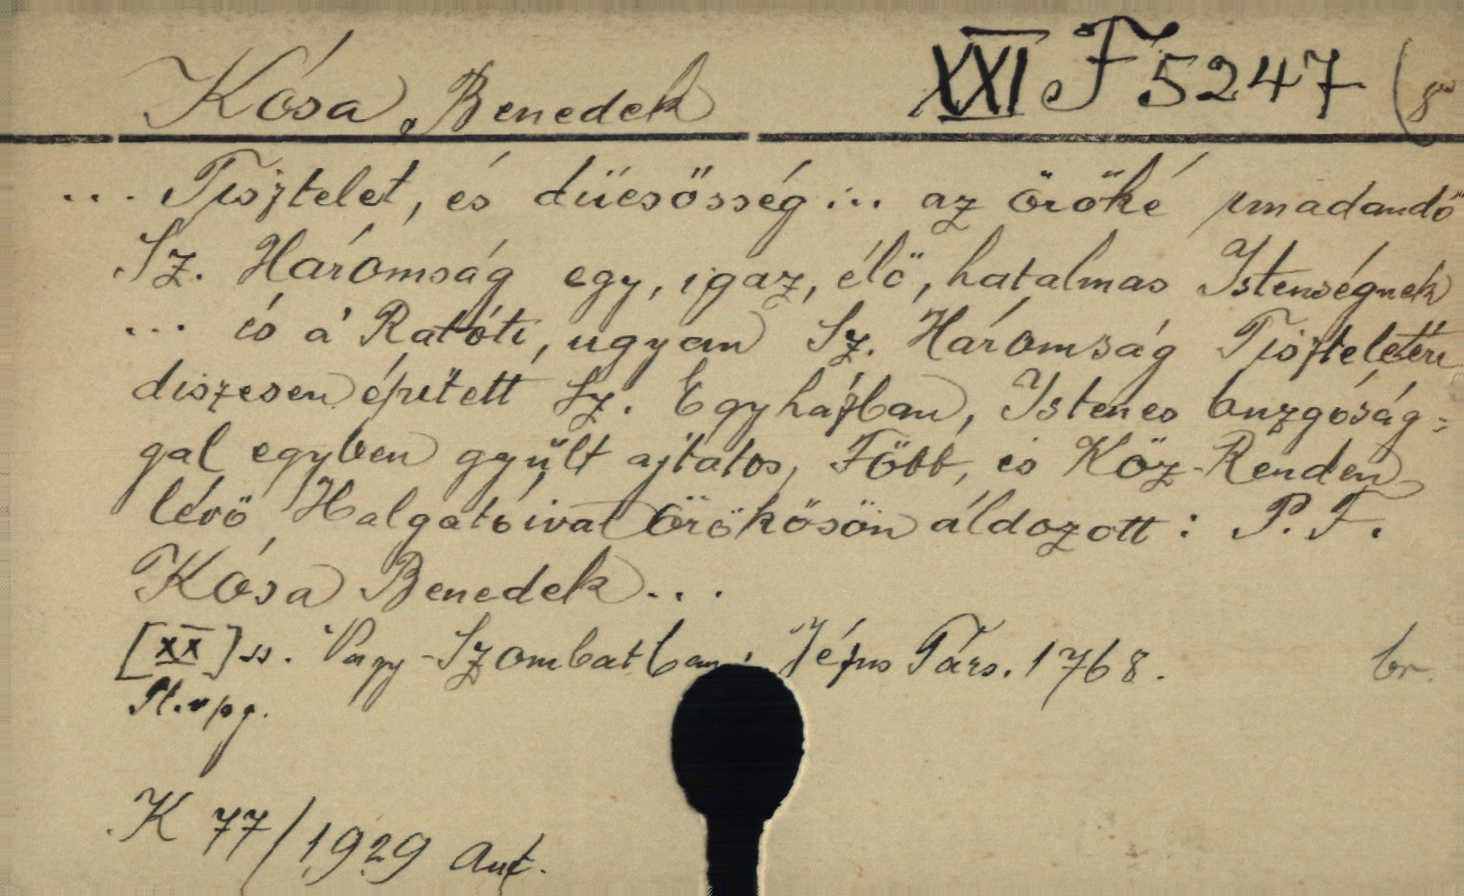 Kósa, Benedek XXI F 5247 (8°
... Tisztelet, és dücsösség ... az öröké imadandó
Sz. Háromság egy, igaz, élö, hatalmas Istenségnek
... és á Ratóti, ugyan Sz. Háromság Tiszteletére
diszesen épitett Sz. Egyházban, Istenes buzgóság=
gal egyben gyűlt ajtatos, Föbb, és Köz-Renden
lévö Halgatóival örökösön áldozott: P. F.
Kósa Benedek ...
[XX] ss. Nagy-Szombatban, Jézus Társ. 1768. br.
K 77/1929 Ant.